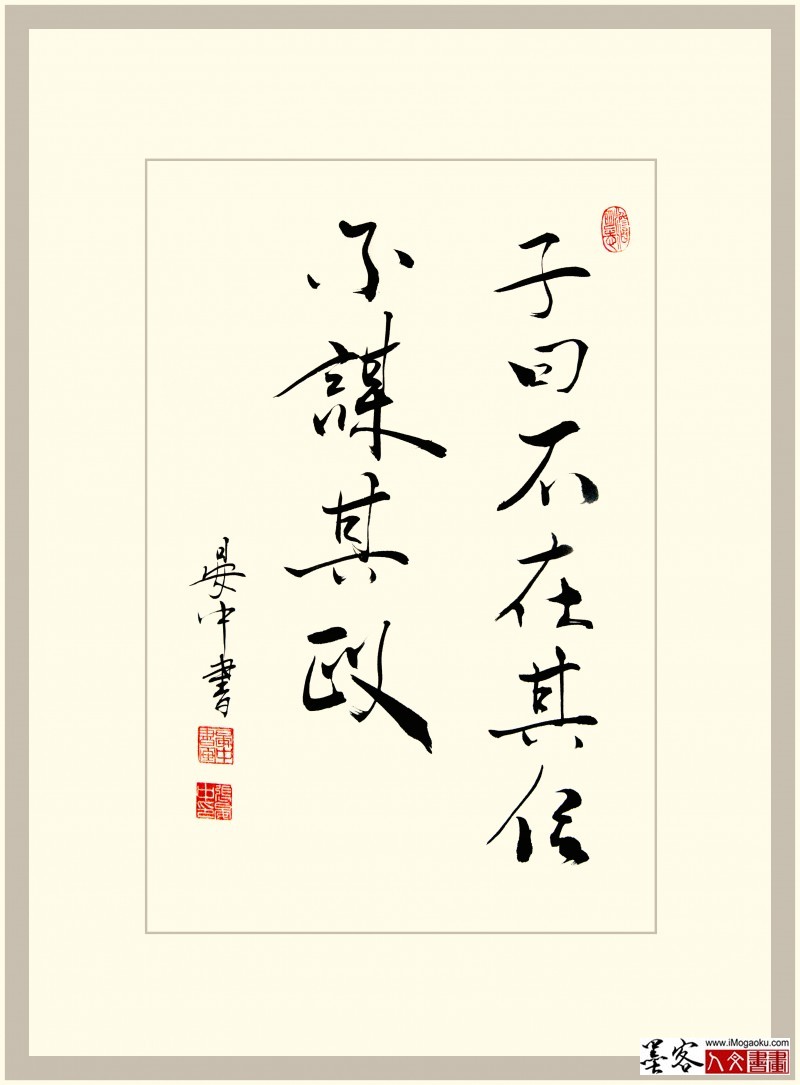 子曰不在其位
不謀其政
晏中書
墨客
www.iMogaoku.com
人文書畫